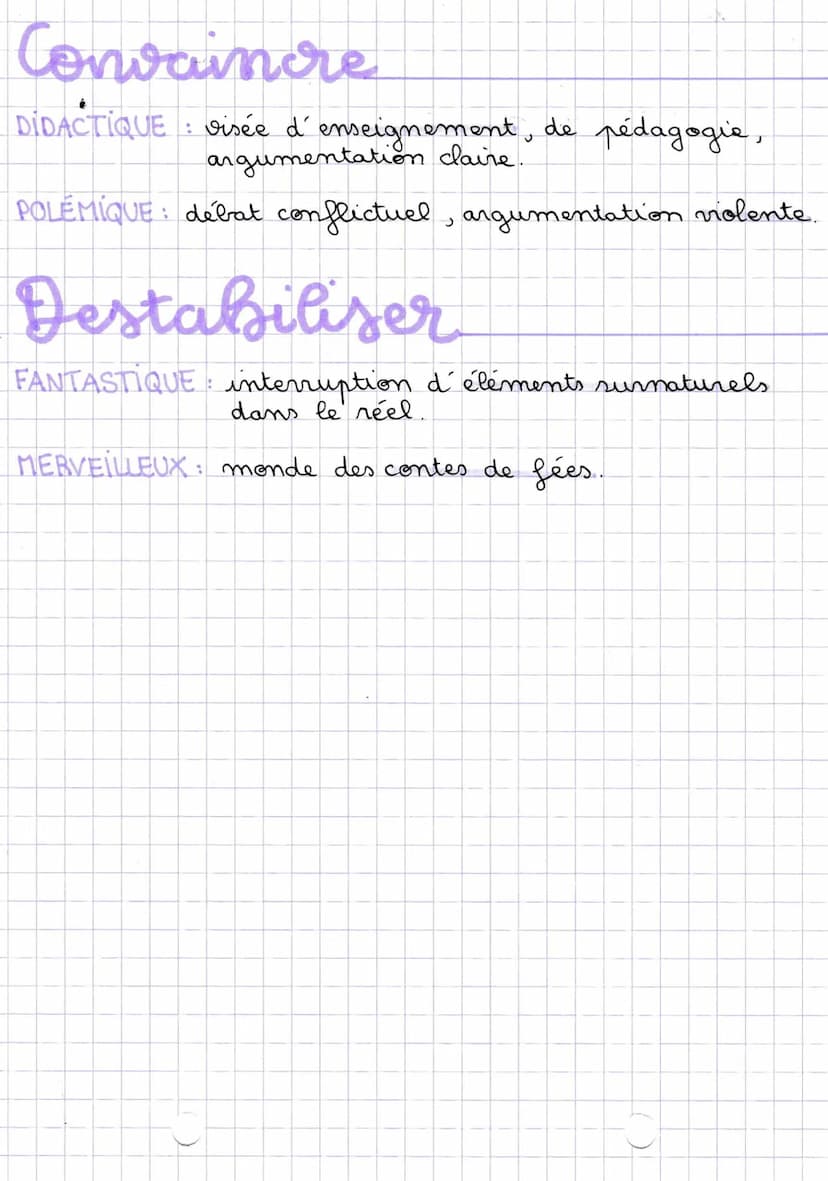 Convaincre
DiDACTiQUE : visée d'enseignement, de pédagogie,
argumentation claire.
POLÉMiQUE : débat conflictuel, argumentation violente.
Destabiliser
FANTASTiQUE : interruption d'éléments surnaturels
dans le réel.
MERVEiLLEUX : monde des contes de fées.